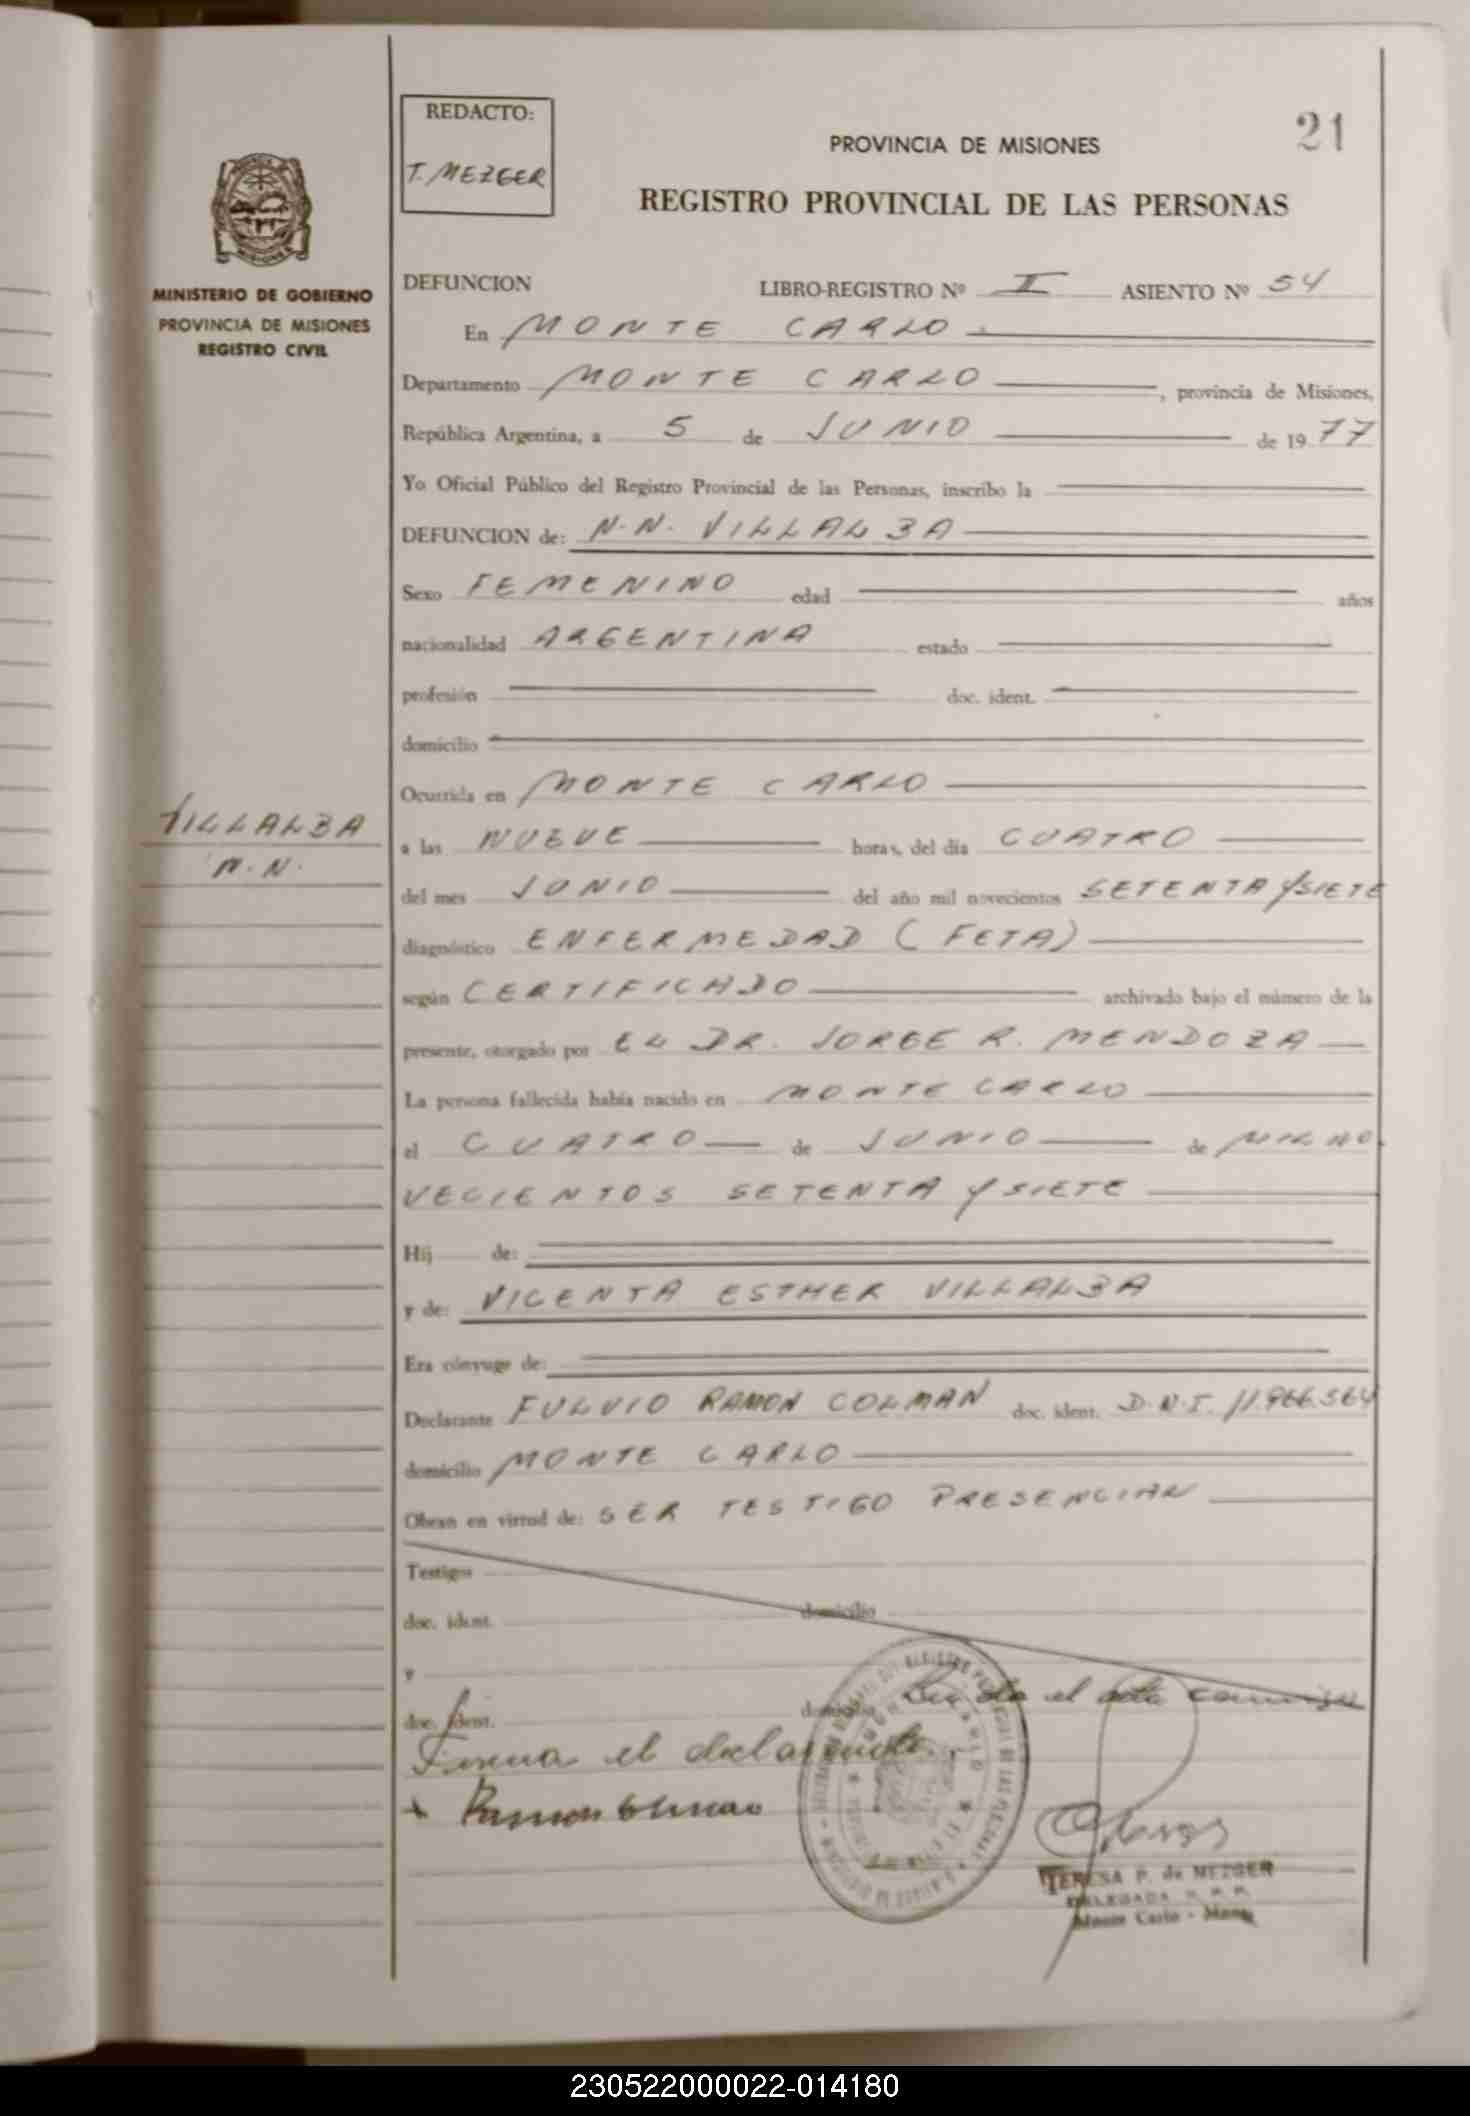 REDACTO:
T. MEZGER
21
PROVINCIA DE MISIONES
REGISTRO PROVINCIAL DE LAS PERSONAS
MINISTERIO DE GOBIERNO
PROVINCIA DE MISIONES
REGISTRO CIVIL
DEFUNCION LIBRO-REGISTRO Nº II ASIENTO Nº 54
En MONTE CARLO
Departamento MONTE CARLO, provincia de Misiones,
República Argentina, a 5 de JUNIO de 1977
Yo Oficial Público del Registro Provincial de las Personas, inscribo la
DEFUNCION de: N.N. VILLALBA
Sexo FEMENINO edad años
nacionalidad ARGENTINA estado
profesión doc. ident.
domicilio
Ocurrida en MONTE CARLO
VILLALBA
N.N.
a las NUEVE horas, del día CUATRO
del mes JUNIO del año mil novecientos SETENTA Y SIETE
diagnóstico ENFERMEDAD (FETA)
según CERTIFICADO archivado bajo el número de la
presente, otorgado por EL DR. JORGE R. MENDOZA
La persona fallecida había nacido en MONTE CARLO
el CUATRO de JUNIO de MIL NO-
VECIENTOS SETENTA Y SIETE
Hij de:
y de: VICENTA ESTHER VILLALBA
Era cónyuge de:
Declarante FULVIO RAMON COLMAN doc. ident. D.N.I. 11.966.564
domicilio MONTE CARLO
Obran en virtud de: SER TESTIGO PRESENCIAL
Testigos
doc. ident. domicilio
y
doc. ident. domicilio
Leída el acta
Firma el declarante.
Ramon
TERESA P. de MEZGER
DELEGADA R. P. P.
Monte Carlo - Mnes
230522000022-014180